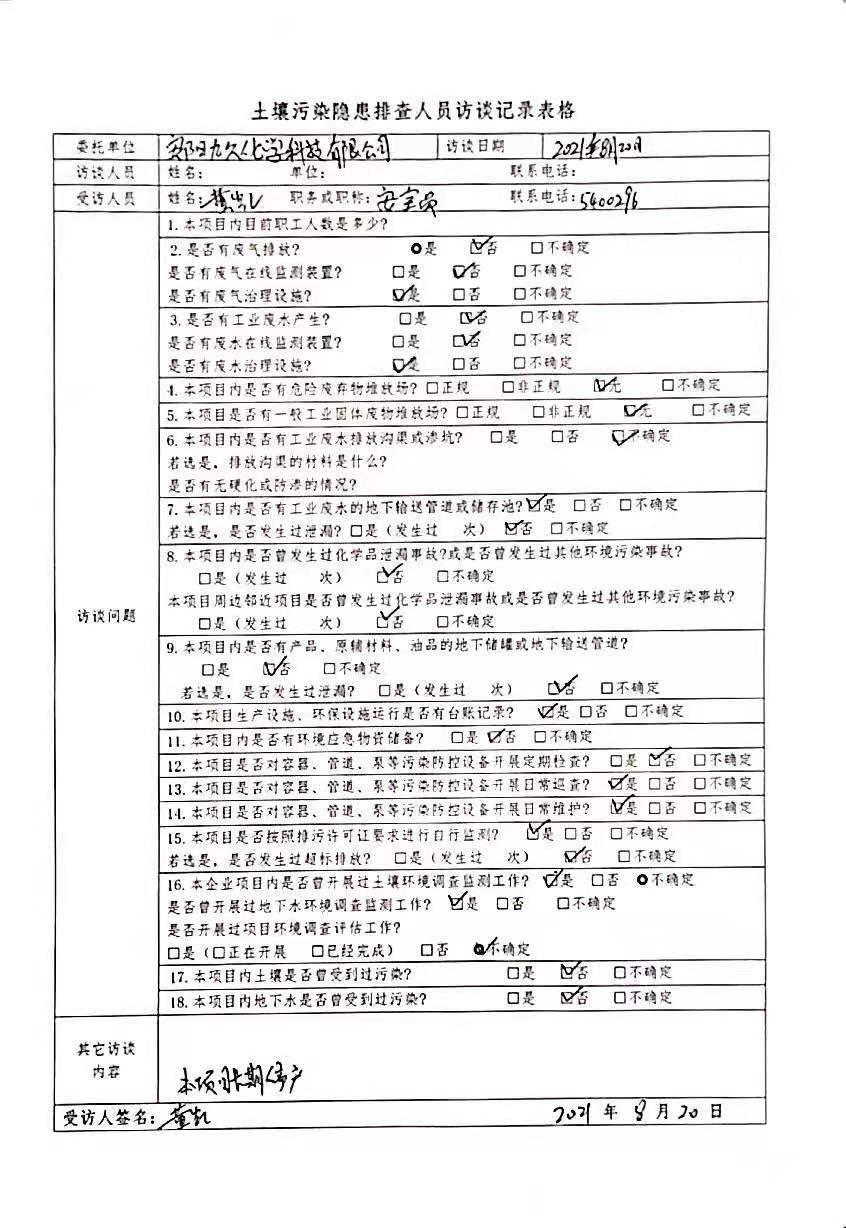 土壤污染隐患排查人员访谈记录表格
委托单位 九久化学科技有限公司 访谈日期 2021年8月20日
访谈人员 姓名: 单位: 联系电话:
受访人员 姓名: 职务或职称: 安全员 联系电话: 5400296
访谈问题
1.本项目内目前职工人数是多少?
2.是否有废气排放? ●是 ☑否 □不确定
是否有废气在线监测装置? □是 ☑否 □不确定
是否有废气治理设施? ☑是 □否 □不确定
3.是否有工业废水产生? □是 ☑否 □不确定
是否有废水在线监测装置? □是 ☑否 □不确定
是否有废水治理设施? ☑是 □否 □不确定
4.本项目内是否有危险废弃物堆放场? □正规 □非正规 ☑无 □不确定
5.本项目是否有一般工业固体废物堆放场? □正规 □非正规 ☑无 □不确定
6.本项目内是否有工业废水排放沟渠或渗坑? □是 □否 ☑不确定
若选是,排放沟渠的材料是什么?
是否有无硬化或防渗的情况?
7.本项目内是否有工业废水的地下输送管道或储存池? ☑是 □否 □不确定
若选是,是否发生过泄漏? □是(发生过 次) ☑否 □不确定
8.本项目内是否曾发生过化学品泄漏事故?或是否曾发生过其他环境污染事故?
□是(发生过 次) ☑否 □不确定
本项目周边邻近项目是否曾发生过化学品泄漏事故或是否曾发生过其他环境污染事故?
□是(发生过 次) ☑否 □不确定
9.本项目内是否有产品、原辅材料、油品的地下储罐或地下输送管道?
□是 ☑否 □不确定
若选是,是否发生过泄漏? □是(发生过 次) ☑否 □不确定
10.本项目生产设施、环保设施运行是否有台账记录? ☑是 □否 □不确定
11.本项目内是否有环境应急物资储备? □是 ☑否 □不确定
12.本项目是否对容器、管道、泵等污染防控设备开展定期检查? □是 ☑否 □不确定
13.本项目是否对容器、管道、泵等污染防控设备开展日常巡查? ☑是 □否 □不确定
14.本项目是否对容器、管道、泵等污染防控设备开展日常维护? ☑是 □否 □不确定
15.本项目是否按照排污许可证要求进行自行监测? ☑是 □否 □不确定
若选是,是否发生过超标排放? □是(发生过 次) ☑否 □不确定
16.本企业项目内是否曾开展过土壤环境调查监测工作? ☑是 □否 ●不确定
是否曾开展过地下水环境调查监测工作? ☑是 □否 □不确定
是否开展过项目环境调查评估工作?
□是(□正在开展 □已经完成) □否 ☑不确定
17.本项目内土壤是否曾受到过污染? □是 ☑否 □不确定
18.本项目内地下水是否曾受到过污染? □是 ☑否 □不确定
其它访谈内容
本项目长期停产
受访人签名: 2021年8月20日